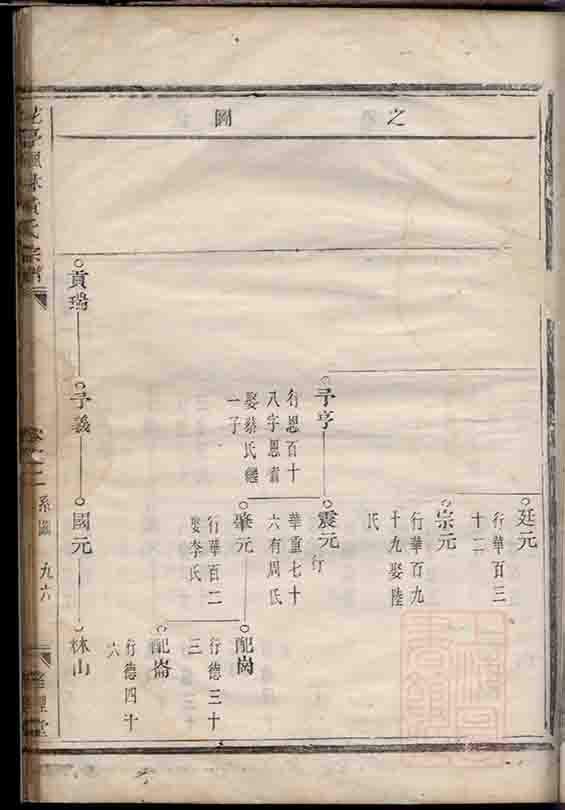 之圖
廷元
行華百三
十二
宗元
行華百九
十九娶陸
氏
子亨
行恩百十
八字恩肅
娶蔡氏繼
一子
震元
行
華重七十
六有周氏
肇元
行華百二
娶李氏
配崗
行德三十
三
配崙
行德四十
六
貢瑞
子義
國元
林山
黃氏宗譜
系圖
九六